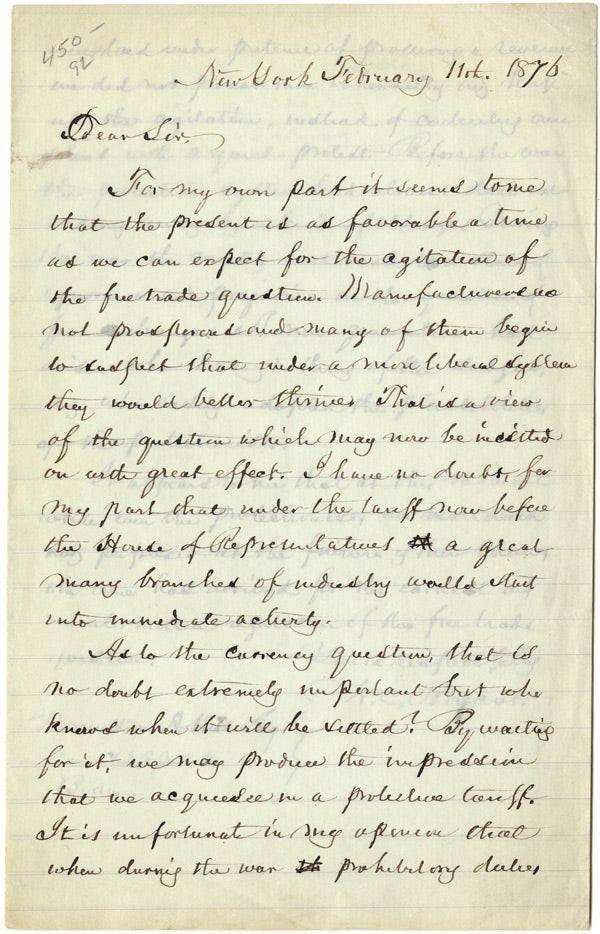 450
92
New York February 11th. 1876
Dear Sir,
For my own part it seems to me
that the present is as favorable a time
as we can expect for the agitation of
the free trade question. Manufacturers are
not prosperous and many of them begin
to suspect that under a more liberal system
they would better thrive. That is a view
of the question which may now be insisted
on with great effect. I have no doubt, for
my part that under the tariff now before
the House of Representatives a great
many branches of industry would start
into immediate activity.
As to the currency question, that is
no doubt extremely important but who
knows when it will be settled? By waiting
for it, we may produce the impression
that we acquiesce in a protective tariff.
It is unfortunate in my opinion that
when during the war prohibitory duties